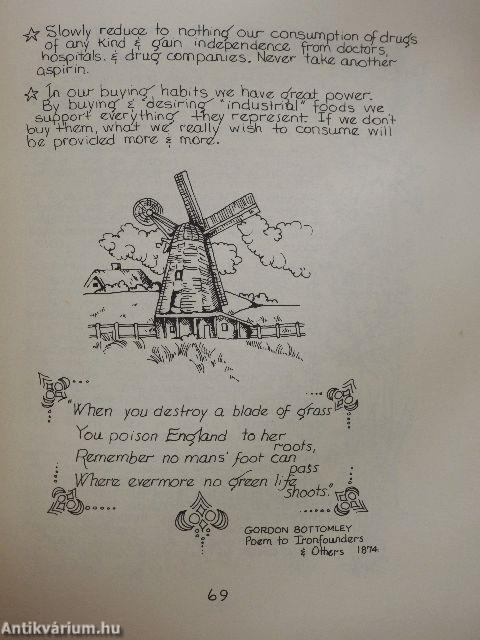 ☆ Slowly reduce to nothing our consumption of drugs
of any kind & gain independence from doctors,
hospitals, & drug companies. Never take another
aspirin.
☆ In our buying habits we have great power.
By buying & "desiring "industrial" foods we
support everything they represent. If we don't
buy them, what we really wish to consume will
be provided more & more.
"When you destroy a blade of grass
You poison England to her
roots,
Remember no mans' foot can
pass
Where evermore no green life
shoots."
GORDON BOTTOMLEY
Poem to Ironfounders
& Others 1874
69
Antikvárium.hu